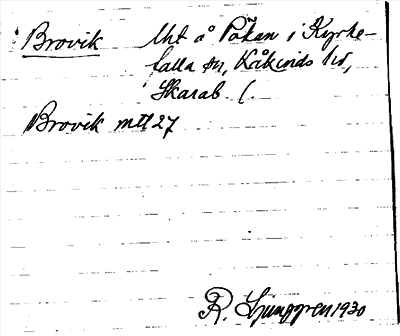 Brovik Uht å Påkan i Kyrke-
falla sn, Kåkinds hd,
Skarab l.
Brovik mtl 27
R. Ljunggren 1930